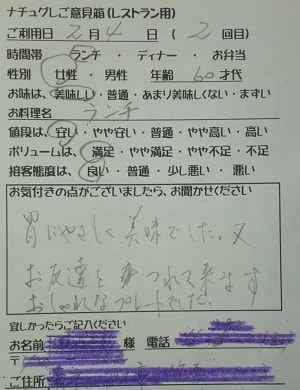 ナチュグしご意見箱(レストラン用)
ご利用日 2月 4日 (2回目)
時間帯 ランチ ・ ディナー ・ お弁当
性別 女性 ・ 男性 年齢 60才代
お味は、美味しい・普通・あまり美味しくない・まずい
お料理名 ランチ
値段は、安い・やや安い・普通・やや高い・高い
ボリュームは、満足・やや満足・やや不足・不足
接客態度は、良い・普通・少し悪い・悪い
お気付きの点がございましたら、お聞かせください
胃にやさしく美味でした。又
お友達をつれて来ます
おしゃれなプレートでした。
宜しかったらご記入ください
お名前 様 電話
〒
ご住所